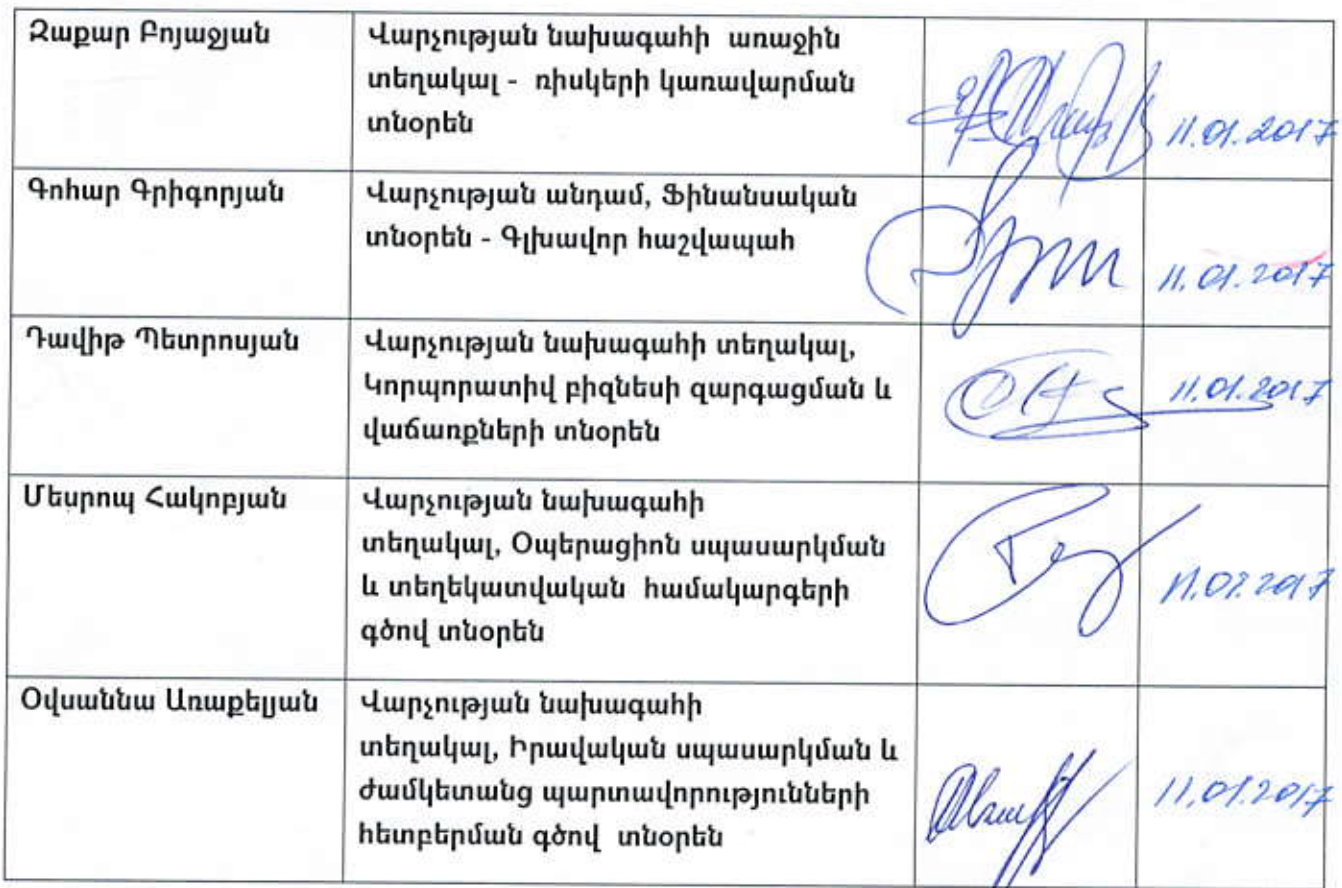 Զաքար Բոյաջյան
Վարչության նախագահի առաջին
տեղակալ - ռիսկերի կառավարման
տնօրեն
11.01.2017
Գոհար Գրիգորյան
Վարչության անդամ, Ֆինանսական
տնօրեն - Գլխավոր հաշվապահ
11.01.2017
Դավիթ Պետրոսյան
Վարչության նախագահի տեղակալ,
Կորպորատիվ բիզնեսի զարգացման և
վաճառքների տնօրեն
11.01.2017
Մեսրոպ Հակոբյան
Վարչության նախագահի
տեղակալ, Օպերացիոն սպասարկման
և տեղեկատվական համակարգերի
գծով տնօրեն
Օվսաննա Առաքելյան
Վարչության նախագահի
տեղակալ, Իրավական սպասարկման և
ժամկետանց պարտավորությունների
հետբերման գծով տնօրեն
11.01.2017